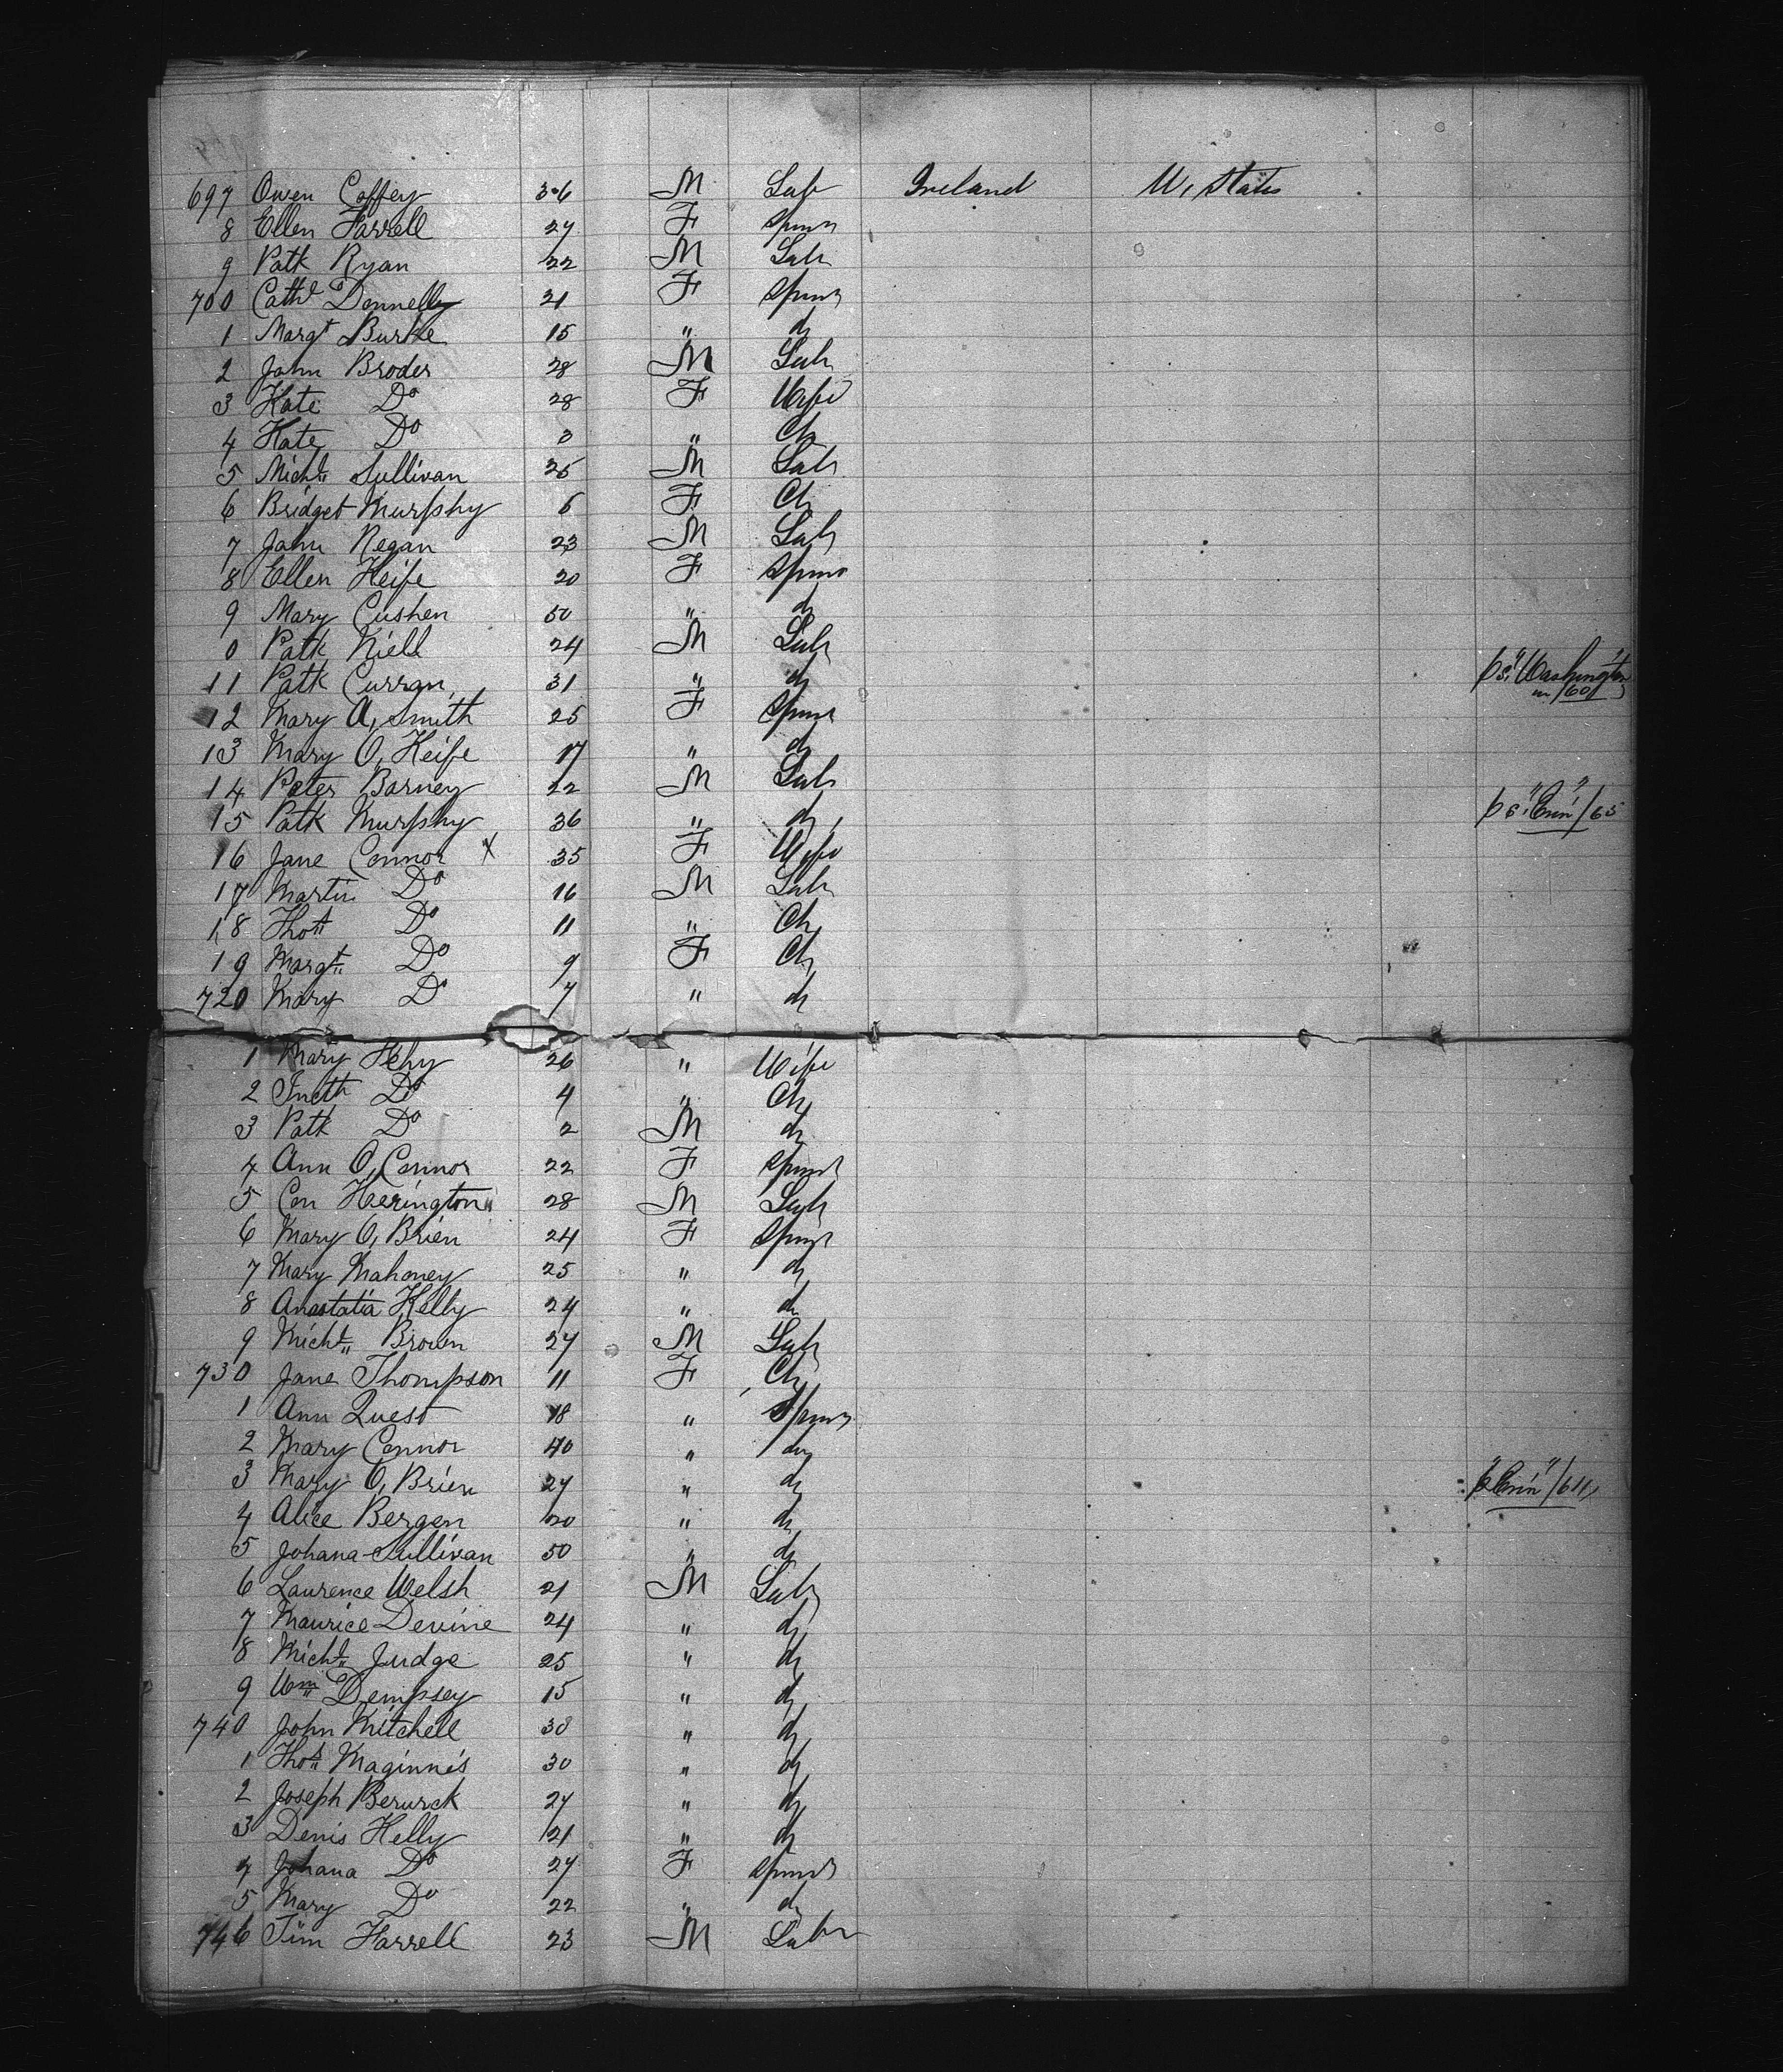 697 Owen Caffey 36 M Lab Ireland U, States
8 Ellen Farrell 27 F Spinr
9 Patk Ryan 22 M Lab
700 Cathe Donnelly 21 F Spinr
1 Margt Burke 15 " do
2 John Broder 28 M Lab
3 Kate Do 28 F Wife
4 Kate Do 3 " Ch
5 Michl Sullivan 25 M Lab
6 Bridget Murphy 6 F Ch
7 John Regan 23 M Lab
8 Ellen Keife 20 F Spinr
9 Mary Cushen 50 " do
0 Patk Niell 24 M Lab
11 Patk Curran 31 " do ps. "Washington in /60
12 Mary A, Smith 25 F Spinr
13 Mary O, Keife 17 " do
14 Peter Barney 22 M Lab
15 Patk Murphy 36 " do ps. "Erin" /65
16 Jane Connor X 35 F Wife
17 Martin Do 16 M Lab
18 Thos Do 11 " Ch
19 Margt Do 9 F Ch
720 Mary Do 7 " do
1 Mary Hehy 26 " Wife
2 Do 4 " Ch
3 Patk Do 2 M do
4 Ann O, Connor 22 F Spinr
5 Con Herington 28 M Lab
6 Mary O, Brien 24 F Spinr
7 Mary Mahoney 25 " do
8 Anastatia Kelly 24 " do
9 Michl Brown 27 M Lab
730 Jane Thompson 11 F Ch
1 Ann Quest 18 " Spinr
2 Mary Connor 40 " do
3 Mary O, Brien 27 " do p "Erin" /64
4 Alice Bergen 20 " do
5 Johana Sullivan 50 " do
6 Laurence Welsh 21 M Lab
7 Maurice Devine 24 " do
8 Michl Judge 25 " do
9 Wm Dempsey 15 " do
740 John Mitchell 30 " do
1 Thos Maginnis 30 " do
2 Joseph Berwick 27 " do
3 Denis Kelly 21 " do
4 Johana Do 27 F Spinr
5 Mary Do 22 " do
746 Tim Farrell 23 M Labr